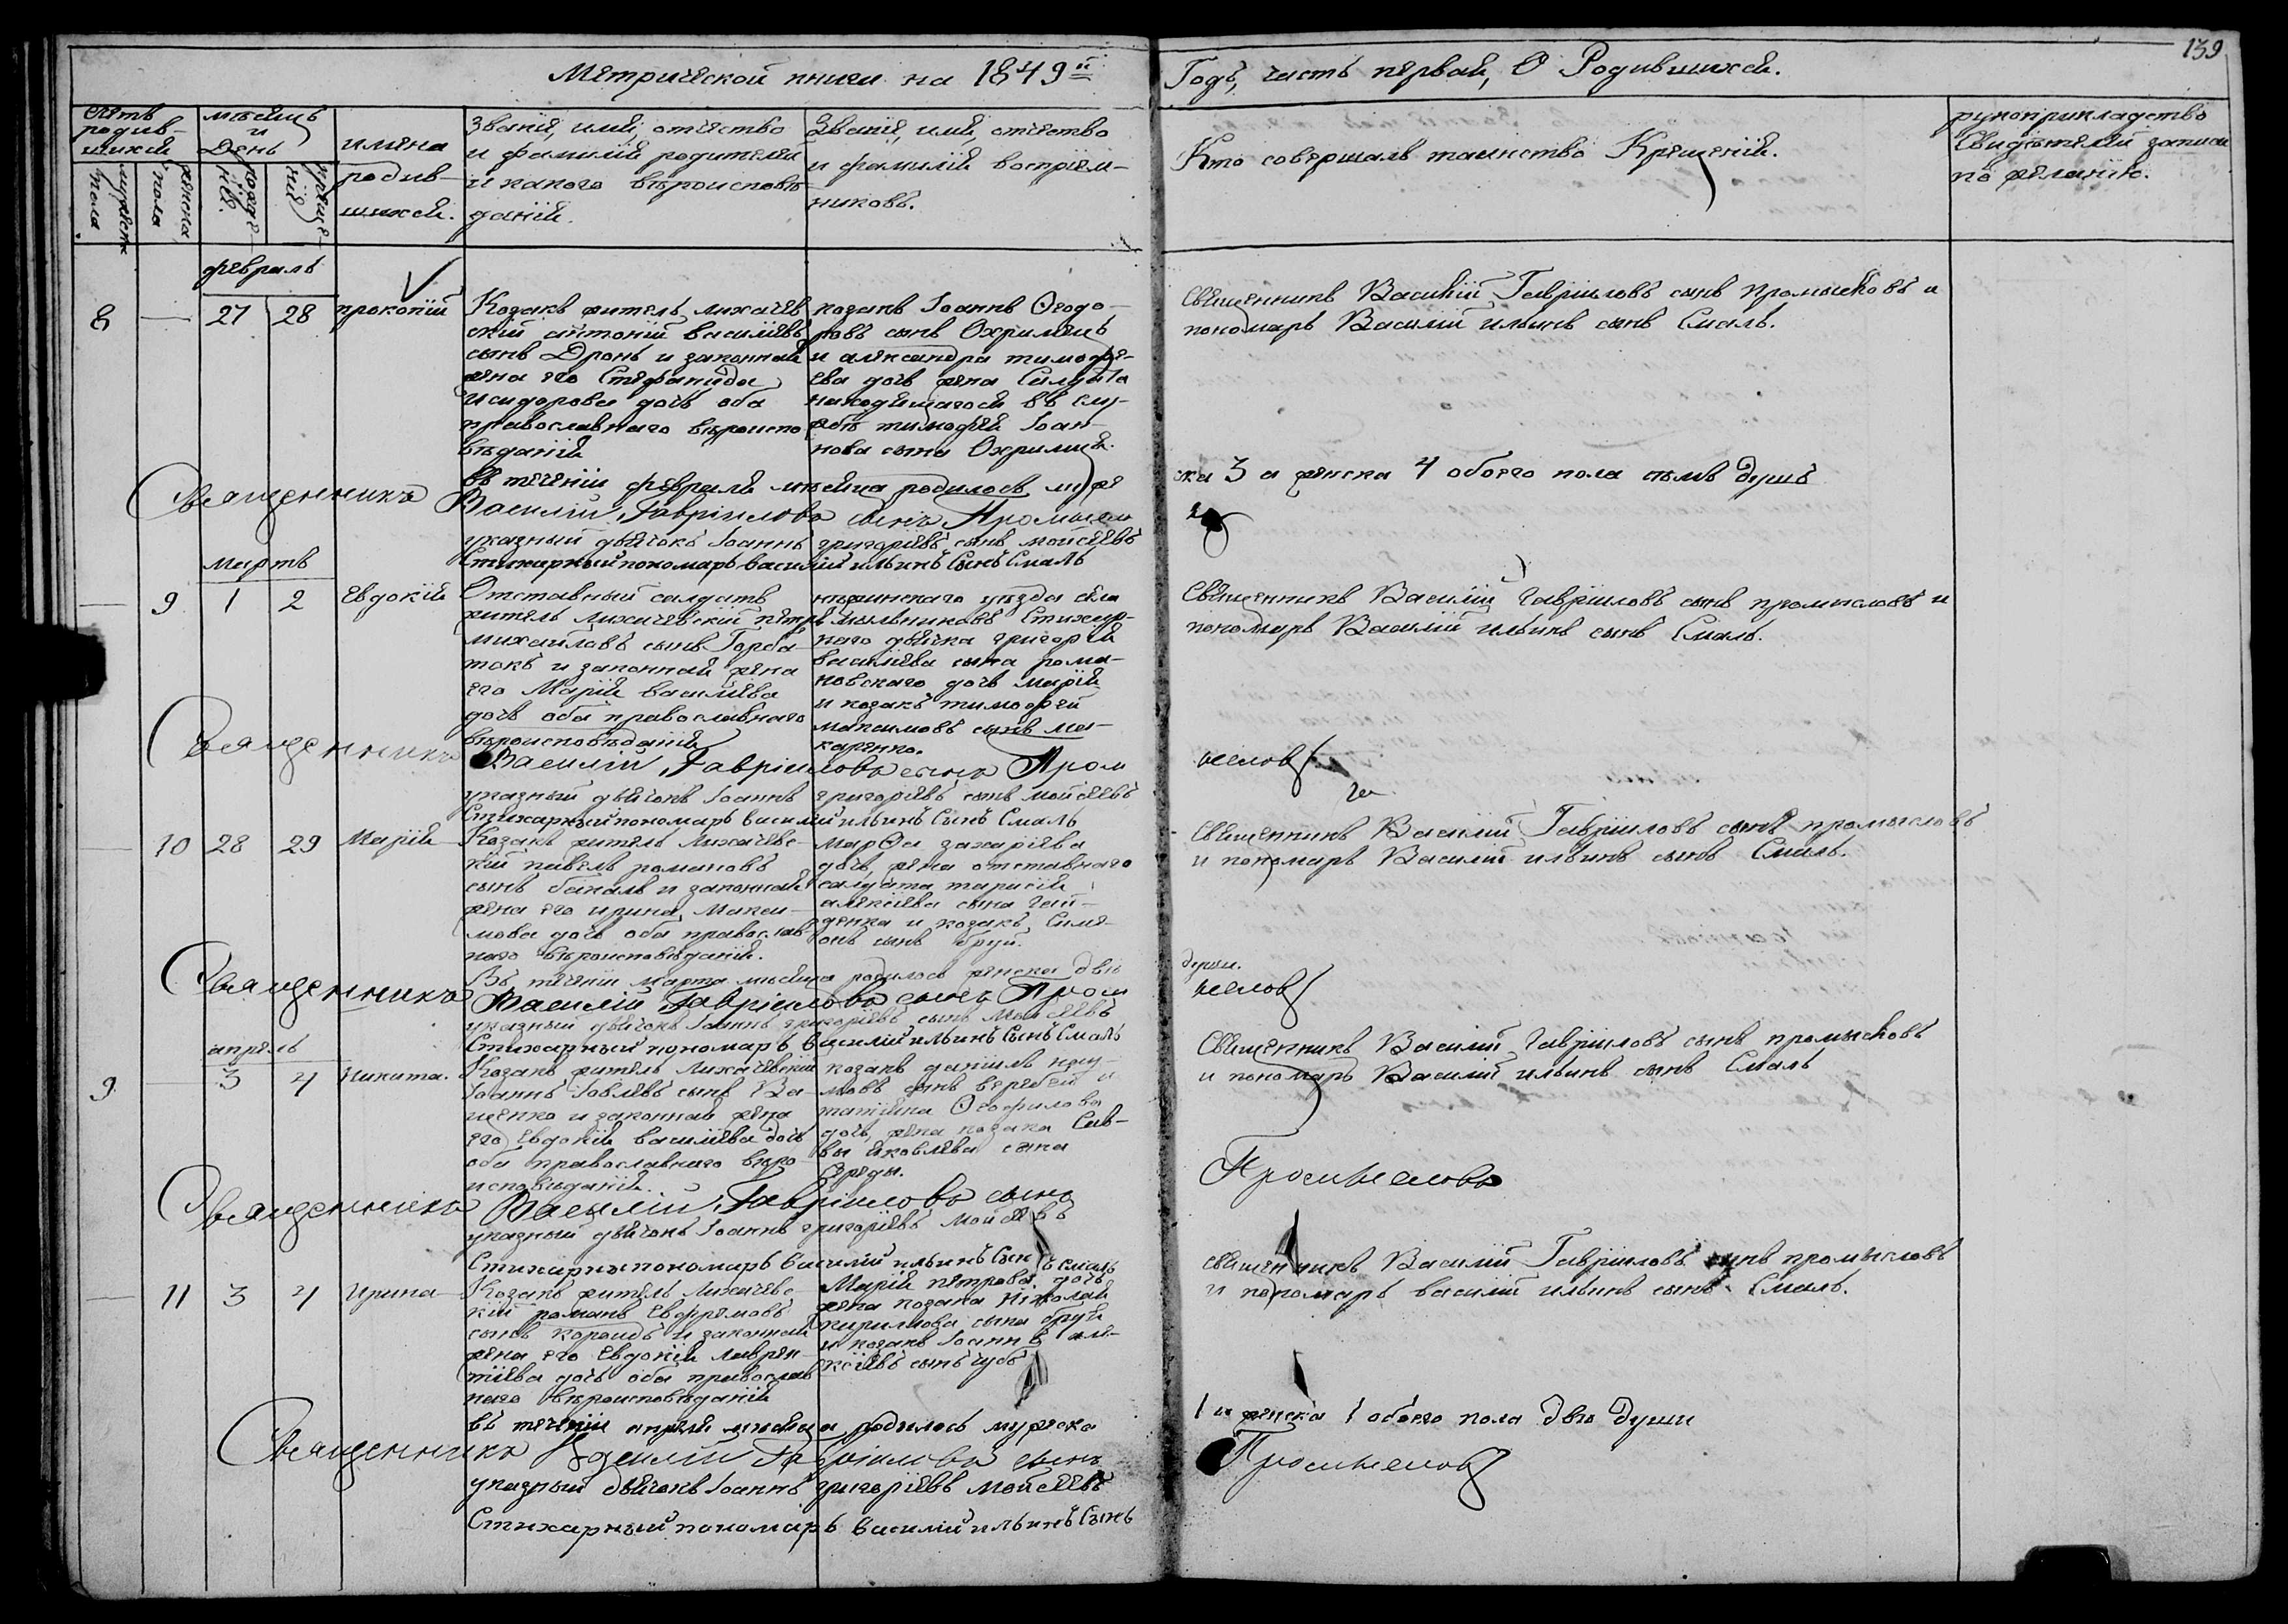 139
Метрической книги на 1849й Годъ, часть первая, О Родившихся.
Счетъ родив-
шихся
мужеска пола
женска пола
мѣсяцъ
и
День
рожде-
нія.
креще-
нія
имена
родив-
шихся.
Званіе, имя, отчество
и фамилія родителей
и какого вѣроисповѣ-
данія.
Званіе, имя, отчество
и фамилія воспріем-
никовъ.
Кто совершалъ таинство Крещенія.
рукоприкладство
Свидѣтелей записи
по желанію.
февраль
8 — 27 28 прокопій
Козакъ житель лихачев
скій антоній василіевъ
сынъ Дронь и законная
жена его Стефанида
Исидорова дочь оба
православнаго вѣроиспо
вѣданія
козакъ Іоаннъ Ѳеодо-
ровъ сынъ Охримецъ
и александра тимофе-
ева дочь жена Салдата
находящагося въ слу-
жбѣ тимофея Іоан-
нова сына Охримця.
Священникъ Василій Гавріиловъ сынъ Промысловъ и
пономарь Василій ильинъ сынъ Смаль.
въ теченіи февраля мѣсяца родилось муже ска 3 а женска 4 обоего пола семь душъ
Священникъ Василій Гавріиловъ сынъ Промысло
указный дьячокъ Іоаннъ григоріевъ сынъ мойсеевъ
Стихарный пономарь василій ильинъ Сынъ Смаль
мартъ
— 9 1 2 Евдокія
Отставный салдатъ
житель лихачевскій петръ
михаиловъ сынъ Горба-
токъ и законная жена
его Марія василіева
дочь оба православнаго
вѣроисповѣданія
нѣжинскаго уѣзда села
мыльниковъ Стихар-
наго дьячка григорія
василіева сына рома-
новскаго дочь марія
и козакъ тимофей
максимовъ сынъ ма-
каренко.
Священникъ Василій Гавріиловъ сынъ промысловъ и
пономарь Василій ильинъ сынъ Смаль.
Священникъ Василій Гавріиловъ сынъ Пром ысловъ
указный дьячокъ Іоаннъ григоріевъ сынъ мойсеевъ
Стихарный пономарь василій ильинъ Сынъ Смаль
— 10 28 29 Марія
Козакъ житель Лихачевс-
кій павелъ романовъ
сынъ бакалъ и законная
жена его ирина Макси-
мова дочь оба православ-
наго вѣроисповѣданія.
марѳа захаріева
дочь жена отставнаго
салдата тарасія
алексіева сына гай-
денка и козакъ Симе-
онъ сынъ бруй.
Священникъ Василій Гавріиловъ сынъ промысловъ
и пономарь Василій ильинъ сынъ Смаль.
Въ теченіи марта мѣсяца родилось женска двѣ души.
Священникъ Василій Гавріиловъ сынъ Пром ысловъ
указный дьячокъ Іоаннъ григоріевъ сынъ Мойсеевъ
Стихарный пономарь василій ильинъ Сынъ Смаль
апрель
9 3 4 Никита.
Козакъ житель Лихачевскій
Іоаннъ Іовлевъ сынъ Ва-
щенко и законная жена
его Евдокія василіева дочь
оба православнаго вѣро-
исповѣданія.
козакъ даніилъ нау-
мовъ сынъ веребей и
татіяна Ѳеофилова
дочь жена козака Сав-
вы яковлева сына
Середы.
Священникъ Василій Гавріиловъ сынъ промысловъ
и пономарь Василій ильинъ сынъ Смаль
Священникъ Василій Гавріиловъ сынъ Промысловъ
указный дьячокъ Іоаннъ григоріевъ Мойсеевъ
Стихарный пономарь василій ильинъ Сынъ Смаль
— 11 3 4 Ирина
Козакъ житель Лихачевс-
кій романъ Евфремовъ
сынъ и законная
жена его Евдокія лаврен-
тіева дочь оба православ
наго вѣроисповѣданія
Марія петрова дочь
жена козака Николая
кирилова сына бруя
и козакъ Іоаннъ але-
ксіевъ сынъ чубъ
священникъ Василій Гавріиловъ сынъ промысловъ
и пономарь василій ильинъ сынъ Смаль.
въ теченіи апреля мѣсяца родилось мужеска 1 и женска 1 обоего пола двѣ души
Священникъ Василій Гавріиловъ сынъ Промысловъ
указный дьячокъ Іоаннъ григоріевъ Мойсеевъ
Стихарный пономарь василій ильинъ Сынъ